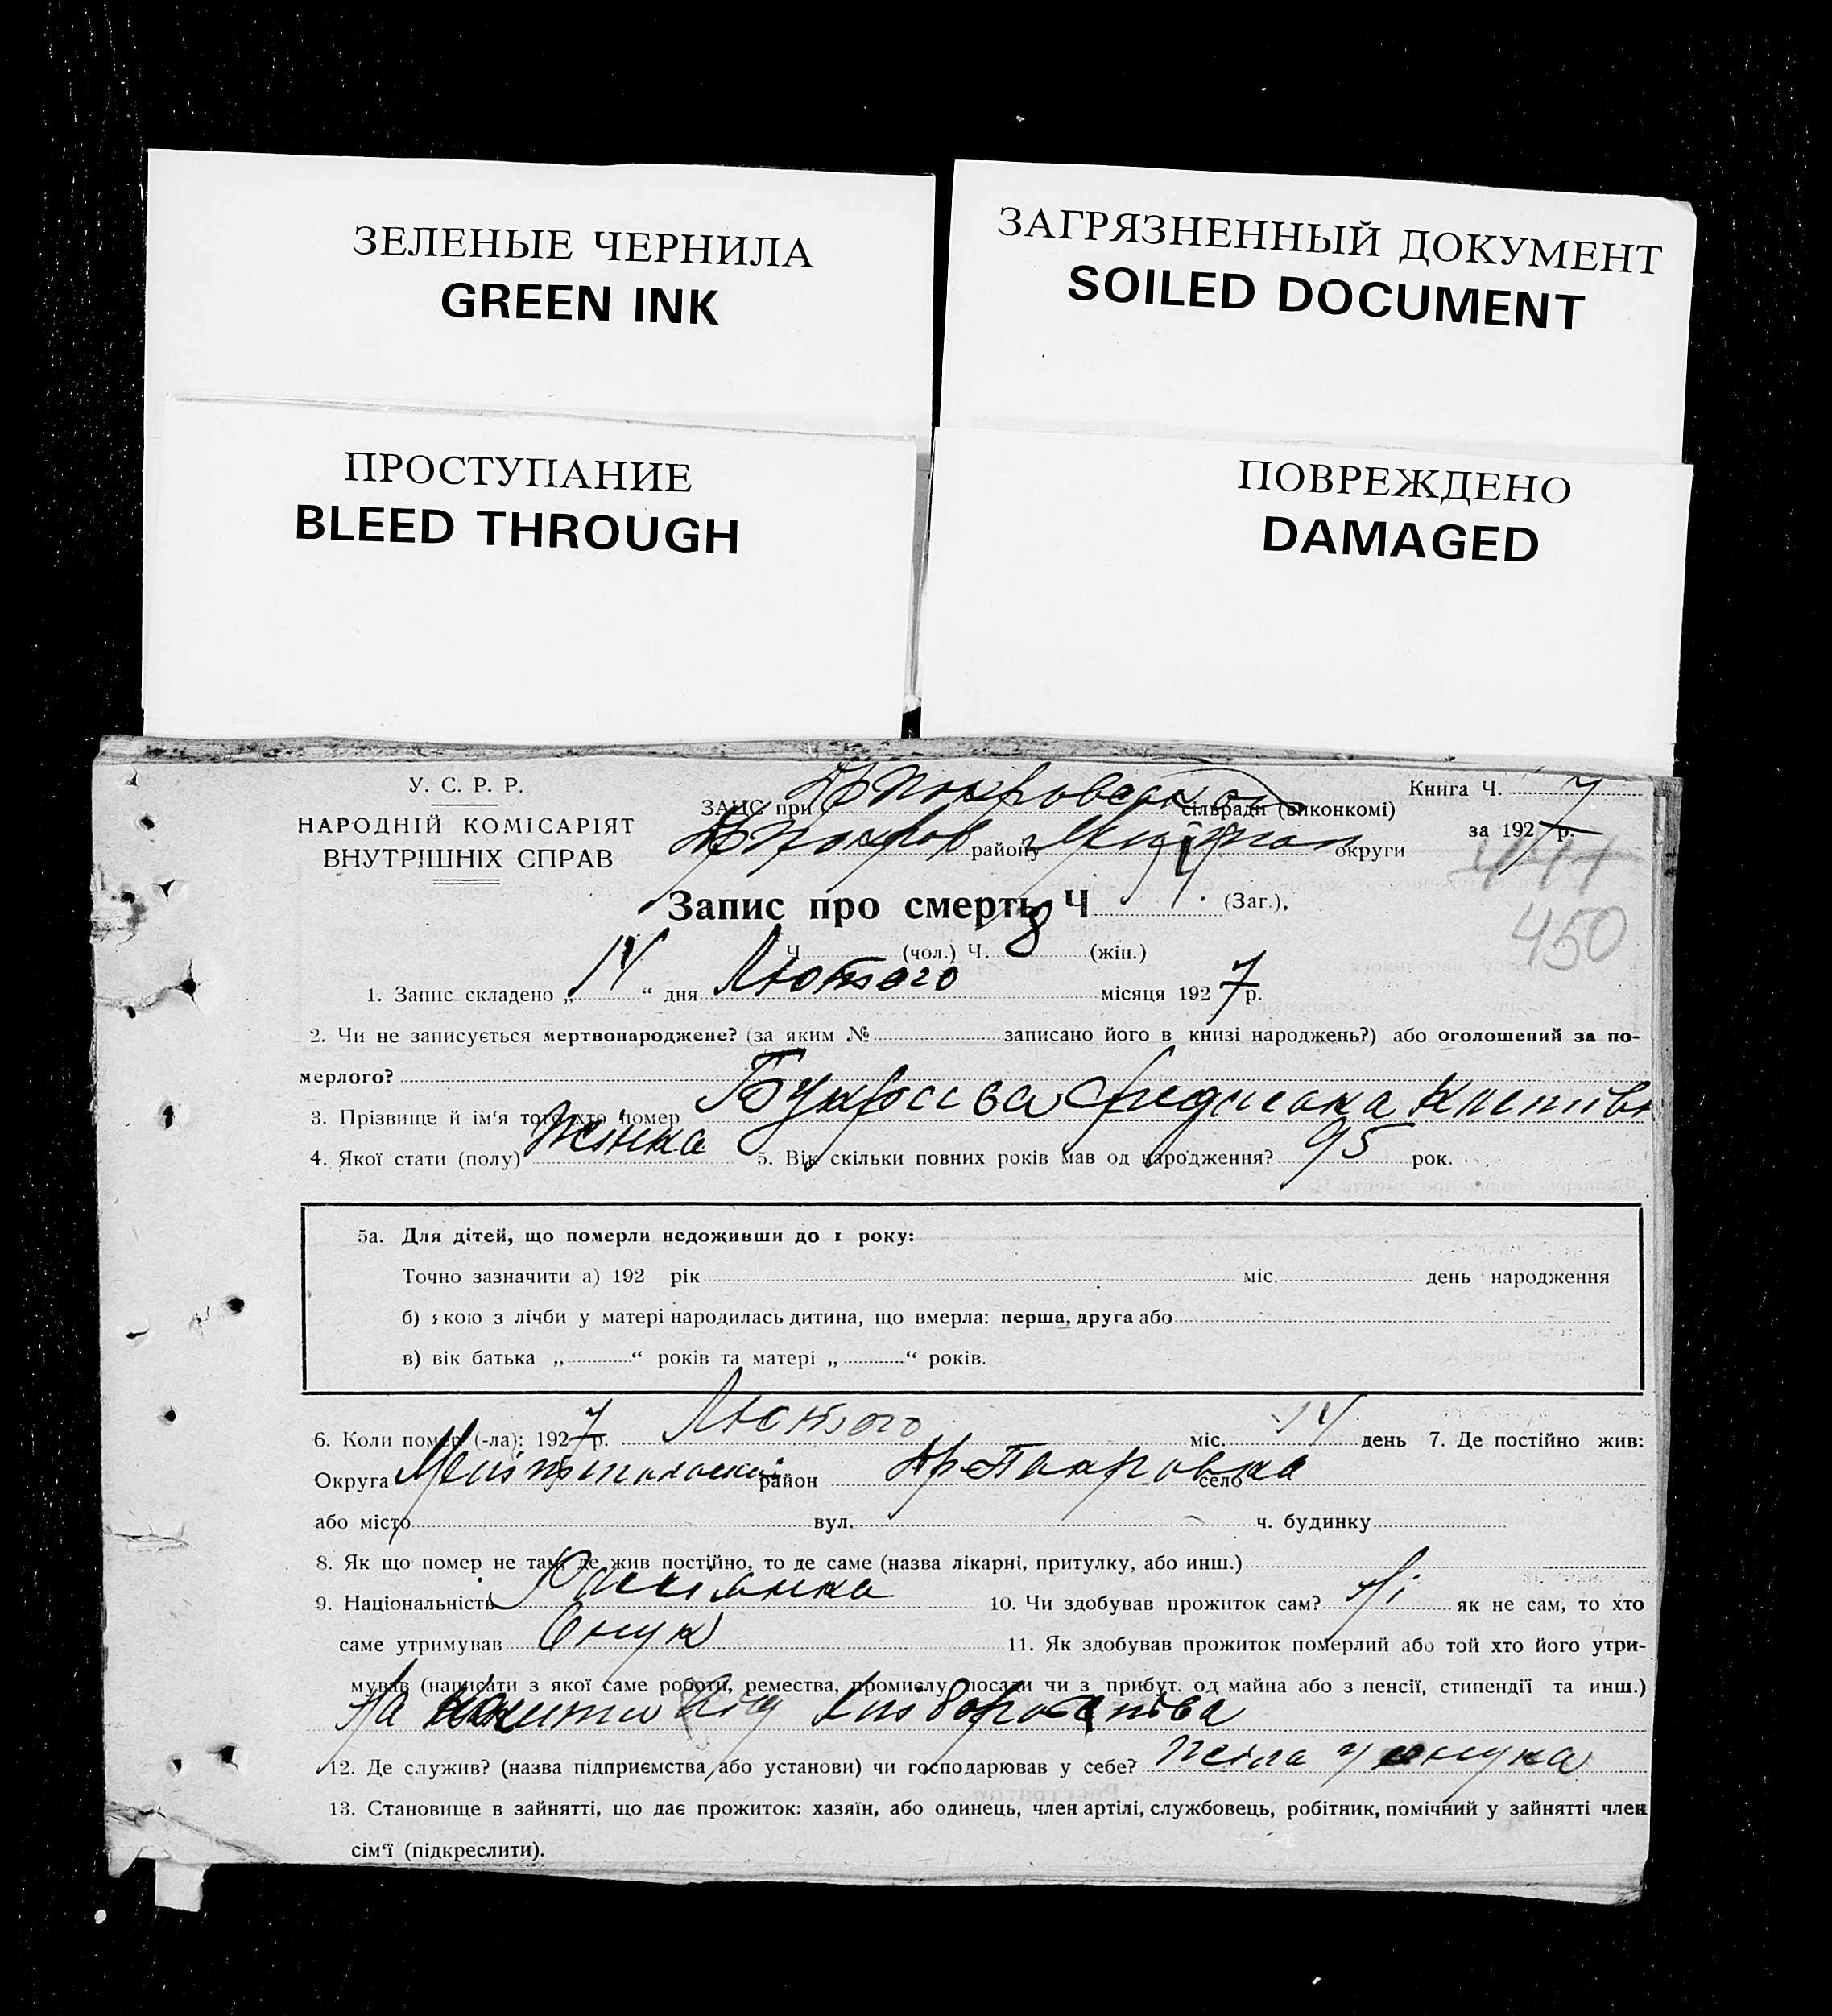 ЗЕЛЕНЫЕ ЧЕРНИЛА
GREEN INK
ЗАГРЯЗНЕННЫЙ ДОКУМЕНТ
SOILED DOCUMENT
ПРОСТУПАНИЕ
BLEED THROUGH
ПОВРЕЖДЕНО
DAMAGED
У. С. Р. Р.
НАРОДНІЙ КОМІСАРІЯТ
ВНУТРІШНІХ СПРАВ
ЗАГС при сільради (виконкомі)
району округи
Книга Ч. 7
за 1927 р.
450
Запис про смерть Ч (Заг.),
Ч (чол.) Ч. 8 (жін.)
1. Запис складено „ 14 “ дня Лютого місяця 1927 р.
2. Чи не записується мертвонароджене? (за яким № записано його в книзі народжень?) або оголошений за по-
мерлого?
3. Прізвище й ім'я того хто помер
4. Якої стати (полу) Жінка 5. Вік скільки повних років мав од народження? 95 рок.
5а. Для дітей, що померли недоживши до 1 року:
Точно зазначити а) 192 рік міс. день народження
б) якою з лічби у матері народилась дитина, що вмерла: перша, друга або
в) вік батька „ “ років та матері „ “ років.
6. Коли помер (-ла): 1927 р. Лютого міс. 14 день 7. Де постійно жив:
Округа район село
або місто вул. ч. будинку
8. Як що помер не там, де жив постійно, то де саме (назва лікарні, притулку, або инш.)
9. Національність 10. Чи здобував прожиток сам? Ні як не сам, то хто
саме утримував Онук 11. Як здобував прожиток померлий або той хто його утри-
мував (написати з якої саме роботи, ремества, промислу, посади чи з прибут. од майна або з пенсії, стипендії та инш.)
На
12. Де служив? (назва підприємства або установи) чи господарював у себе? у онука
13. Становище в зайнятті, що дає прожиток: хазяїн, або одинець, член артілі, службовець, робітник, помічний у зайнятті член
сім'ї (підкреслити).